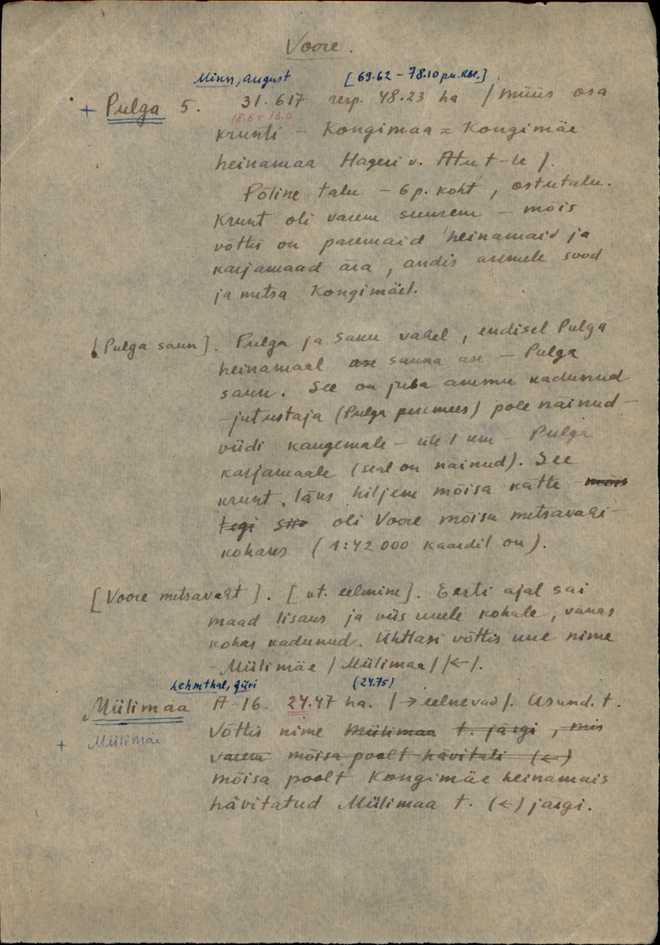 Voore.
Minn, August [69.62 – 78.10 pu. Rbl.]
+ Pulga 5. 31.617 resp. 48.23 ha / müüs osa
krunti – Kongimaa = Kongimäe
heinamaa Hageri v. Atu t-le /.
Põline talu – 6 p. koht, ostutalu.
Krunt oli varem suurem – mõis
võttis on paremaid heinamaid ja
karjamaad ära, andis asemele sood
ja metsa Kongimäel.
[Pulga saun]. Pulga ja Sanu vahel, endisel Pulga
heinamaal ase sauna ase – Pulga
saun. See on juba ammu kadunud
– jutustaja (Pulga peremees) pole näinud –
viidi kaugemale – üle 1 km Pulga
karjamaale (seal on näinud). See
krunt läks hiljem mõisa kätte mõis
tegi oli Voore mõisa metsavahi-
kohaks (1:42 000 kaardil on).
[Voore metsavaht]. [vt. eelmine]. Eesti ajal sai
maad lisaks ja viis uuele kohale, vanas
kohas kadunud. Ühtlasi võttis uue nime
– Müülimäe / Müülimaa / /←/.
Lehmthal, Jüri (24.75)
Müülimaa A-16. 24.47 ha. /→ eelnevad/. Asund. t.
Võttis nime Müülimaa t. järgi, mis
+ Müülimäe
varem mõisa poolt hävitati (←)
mõisa poolt Kongimäe heinamais
hävitatud Müülimaa t. (←) järgi.